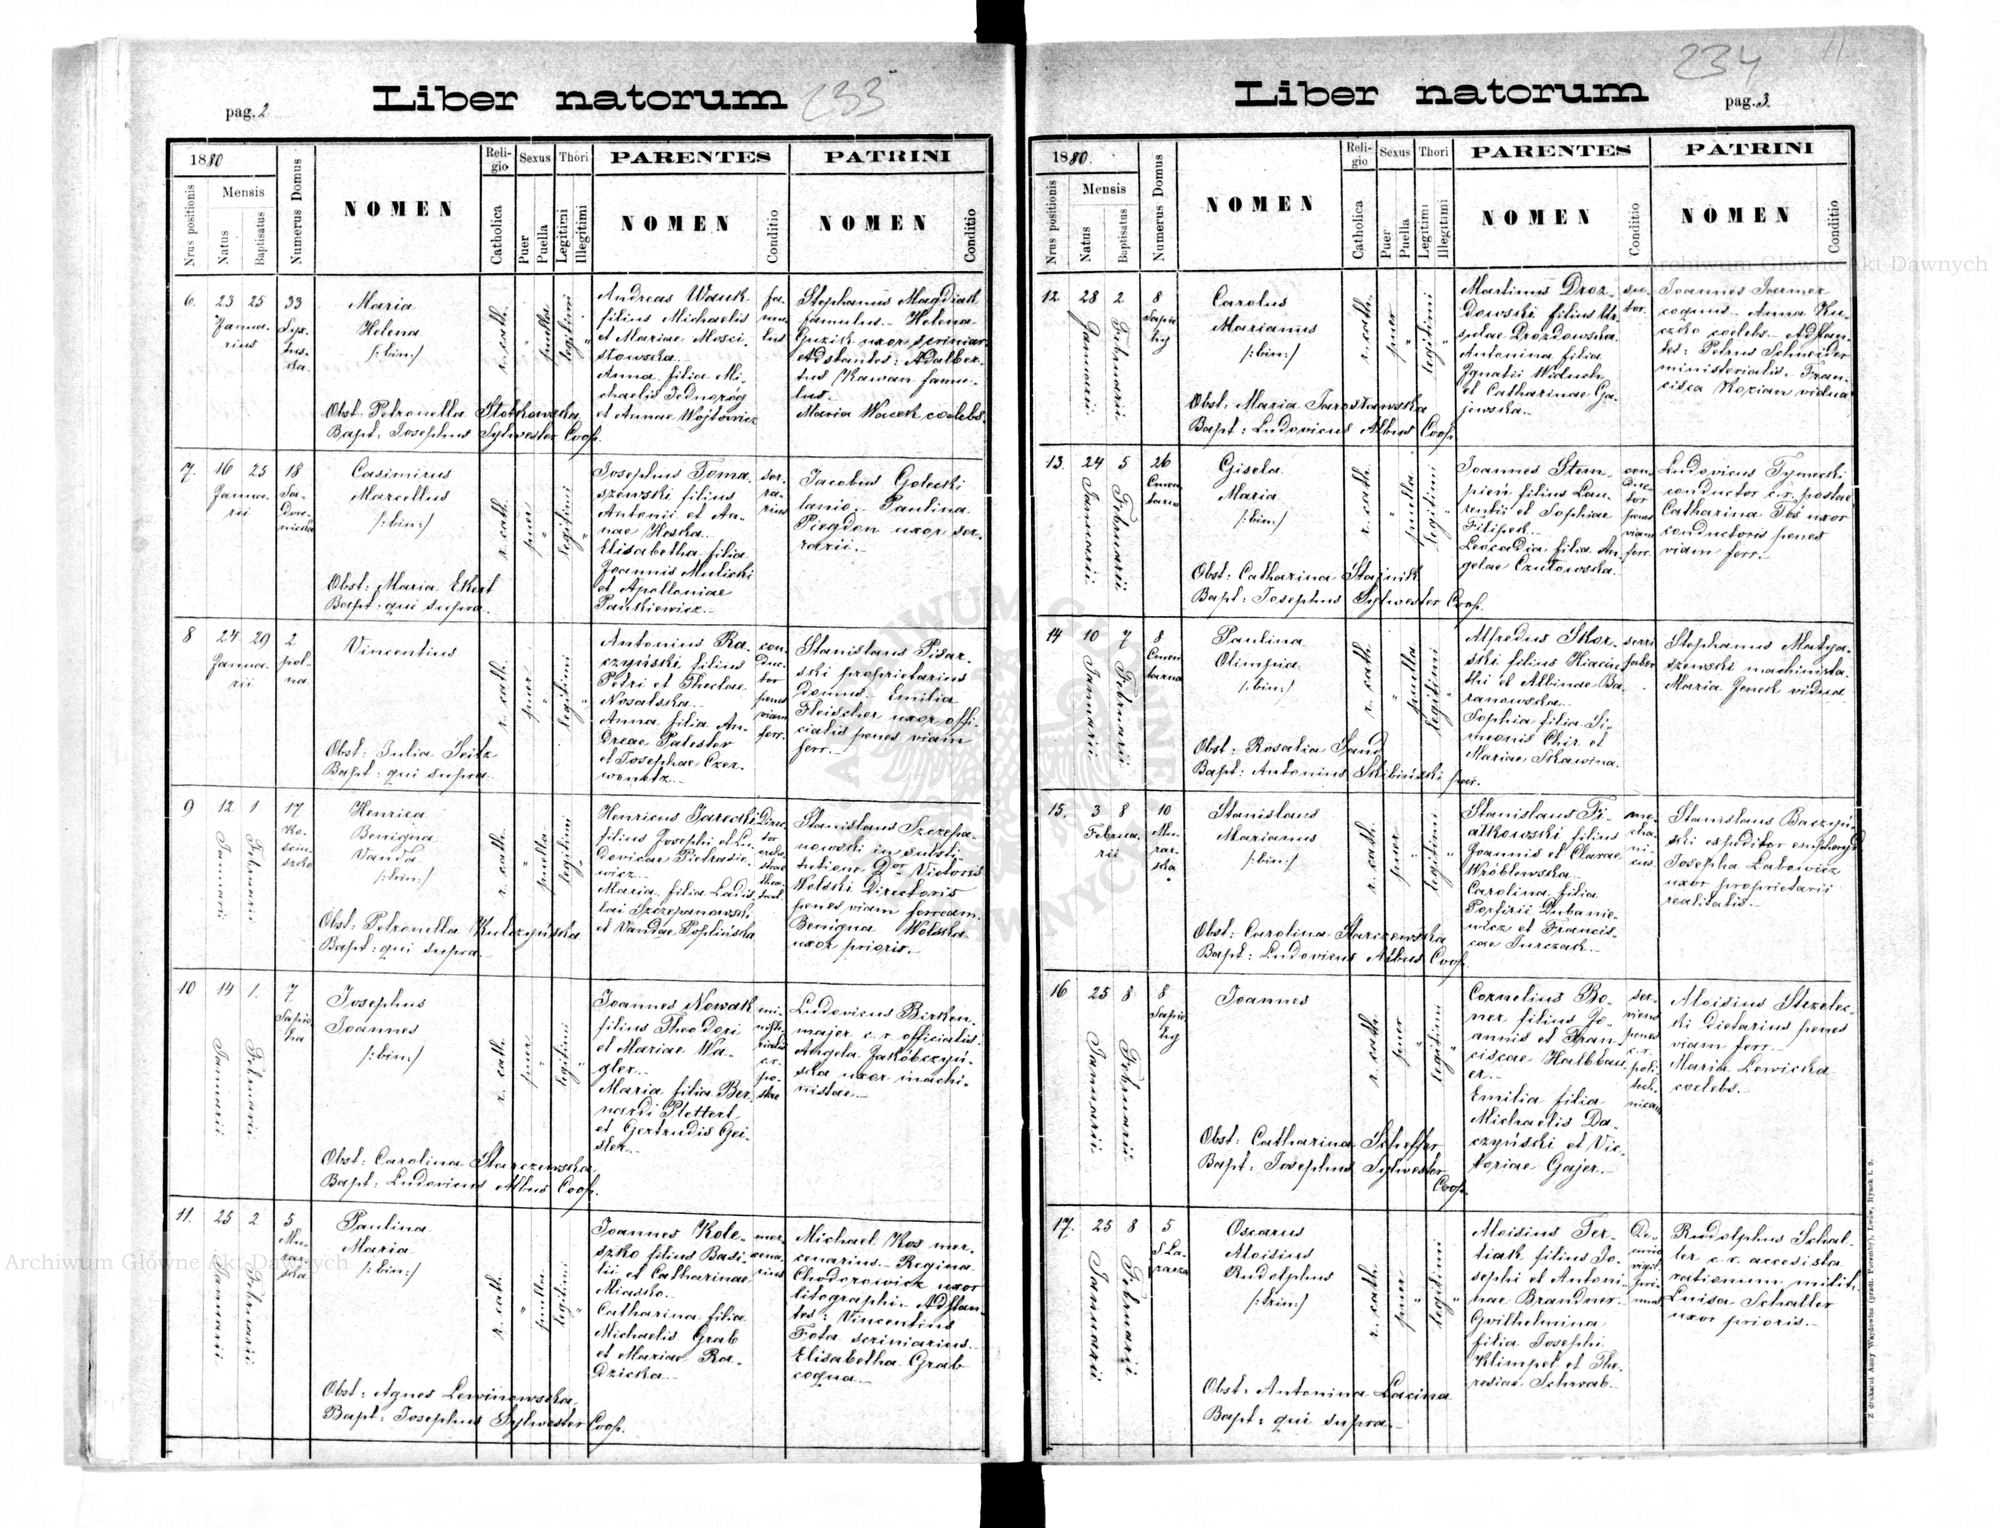 pag. 2
Liber natorum
233
1880
Mensis
Nrus positionis
Natus
Baptisatus
Numerus Domus
NOMEN
Religio
Catholica
Sexus
Puer
Puella
Thori
Legitimi
Illegitimi
PARENTES
NOMEN
Conditio
PATRINI
NOMEN
Conditio
6. 23 25 33
Januarius
Maria
Helena
/:bin:/
Obst: Petronella
Bapt: Josephus Sylwester Coop.
r. cath.
puella
legitimi
Andreas Wauk
filius Michaelis
et Mariae Mosci-
stowska
Anna filia Mi-
chaelis Jednoróg
et Annae Wojtowicz
fa-
mu-
lus
Stephanus Magdiak
famulus. Helena
Guzik uxor scriniar
Adstantes: Adalber-
tus Kawan famu-
lus.
Maria Wacek coelebs.
7. 16 25 18
Janua-
rii
Casimirus
Marcellus
/:bin:/
Obst: Maria Ekert
Bapt: qui supra.
r. cath.
puer
legitimi
Josephus Toma-
szewski filius
Antonii et An-
nae Hoska
Elisabetha filia
Joannis Mulicki
et Apolloniae
Pankiewicz
ser-
ra-
rius
Jacobus Golecki
lanio. Paulina
Piegdon uxor ser-
rarii.
8 24 29 2
Janua-
rii
pol-
na
Vincentius
Obst: Julia Seitz
Bapt: qui supra
r. cath.
puer
legitimi
Antonius Ra-
czyński filius
Petri et Theclae
Nosalska
Anna filia An-
dreae Palester
et Josephae Czer-
wenetz
con-
duc-
tor
penes
viam
ferr.
Stanislaus Pisar-
ski proprietarius
domus. Emilia
Fleischer uxor offi-
cialis penes viam
ferr.
9 12 1 17
Januarii
Februarii
Ko-
sciu-
szko
Henrica
Benigna
Vanda
/:bin:/
Obst: Petronella Kulczyńska
Bapt: qui supra
r. cath.
puella
legitimi
Henricus Jarecki
filius Josephi et Lu-
dovicae Pietrasie-
wicz
Maria filia Ladis-
lai Szczepanowski
et Vandae Poplińska
Direc-
tor
Stanislaus Szczepa-
nowski in substi-
tutione Dni Victoris
Wolski Directoris
penes viam ferream.
Benigna Wolska
uxor prioris.
10 14 1. 7
Januarii
Februarii
Sapie-
ha
Josephus
Joannes
/:bin:/
Obst: Carolina Starczewska
Bapt: Ludovicus Albus Coop.
r. cath.
puer
legitimi
Joannes Nowak
filius Theodori
et Mariae Wa-
gler
Maria filia Ber-
nardi Plettert
et Gertrudis Gei-
sler
mi-
niste-
rialis
c.r.
po-
stae
Ludovicus Birken-
majer c. r. officialis
Angela Jakóbczyń-
ska uxor machi-
nistae
11. 25 2 5
Januarii
Februarii
Mu-
rar-
ska
Paulina
Maria
/:bin:/
Obst: Agnes Lewinowska
Bapt: Josephus Sylwester Coop.
r. cath.
puella
legitimi
Joannes Kole-
szko filius Basi-
lii et Catharinae
Miasko
Catharina filia
Michaelis Grab
et Mariae Ra-
dzicka
mer-
cena-
rius
Michael Kos mer-
cenarius. Regina
Chodorowicz uxor
litographi. Adstan-
tes: Vincentius
Fota scriniarius.
Elisabetha Grab
coqua.
234
11
Liber natorum
pag. 3.
1880.
Mensis
Nrus positionis
Natus
Baptisatus
Numerus Domus
NOMEN
Religio
Catholica
Sexus
Puer
Puella
Thori
Legitimi
Illegitimi
PARENTES
NOMEN
Conditio
PATRINI
NOMEN
Conditio
12. 28 2 8
Januarii
Februarii
Sapie-
hy
Carolus
Marianus
/:bin:/
Obst: Maria Jarosławska
Bapt: Ludovicus Albus Coop.
r. cath.
puer
legitimi
Martinus Droz-
dowski filius Ur-
sulae Drozdowska
Antonina filia
Ignatii Widuch
et Catharinae Ga-
jewska
su-
tor.
Joannes Jarmer
coquus. Anna Ku-
czko coelebs. Adstan-
tes: Petrus Schneider
ministerialis. Fran-
cisca Kozian vidua
13. 24 5 26
Januarii
Februarii
Gisela
Maria
/:bin:/
Obst: Catharina Stajnik
Bapt: Josephus Sylwester Coop.
r. cath.
puella
legitimi
Joannes Stem-
pień filius Lau-
rentii et Sophiae
Filipek
Leocadia filia An-
gelae Czułowska
con-
duc-
tor
penes
viam
ferr.
Ludovicus Tymecki
conductor c.r. postae
Catharina Toś uxor
conductoris penes
viam ferr.
14 10 7 8
Januarii
Februarii
Cmen-
tarna
Paulina
Olimpia
/:bin:/
Obst: Rosalia Sand
Bapt: Antonius Skibiński par.
r. cath.
puella
legitimi
Alfredus Skor-
ski filius Hiacin-
thi et Albinae Ba-
ranowska
Sophia filia Si-
meonis Chir et
Mariae Skawina
serri
faber
Stephanus Matya-
szewski machinista
Maria Jenek vidua
15. 3 8 10
Februa-
rii
Mu-
rar-
ska
Stanislaus
Marianus
/:bin:/
Obst: Carolina Starczewska
Bapt: Ludovicus Albus Coop.
r. cath.
puer
legitimi
Stanislaus Fi-
ałkowski filius
Joannis et Clarae
Wróblewska
Carolina filia
Porfirii Dubanie-
wicz et Francis-
cae Jurczak
me-
cha-
ni-
cus.
Stanislaus Baczyń-
ski expeditor
Josepha Latowicz
uxor proprietarii
realitatis.
16 25 8 8
Januarii
Februarii
Sapie-
hy
Joannes
Obst: Catharina Scheffer
Bapt: Josephus Sylwester
Coop.
r. cath.
puer
legitimi
Cornelius Bo-
ner filius Jo-
annis et Fran-
ciscae Halbbau-
er
Emilia filia
Michaelis Da-
czyński et Vic-
toriae Gajer.
ser-
viens
penes
c.r.
poli-
tech-
nicam
Aloisius Strzelec-
ki dietarius penes
viam ferr.
Maria Lewicka
coelebs.
17. 25 8 5
Januarii
Februarii
S La-
zarza
Oscarus
Aloisius
Rudolphus
/:trin:/
Obst: Antonina Lacina
Bapt: qui supra
r. cath.
puer
legitimi
Aloisius Ter-
tiak filius Jo-
sephi et Antoni-
nae Brandner
Gvilhelmina
filia Josephi
Klimpel et The-
resiae Schwab.
Rudolphus Schal-
ler c.r. accesista
rationum milit.
Luisa Schaller
uxor prioris.
Archiwum Główne Akt Dawnych
Archiwum Główne Akt Dawnych